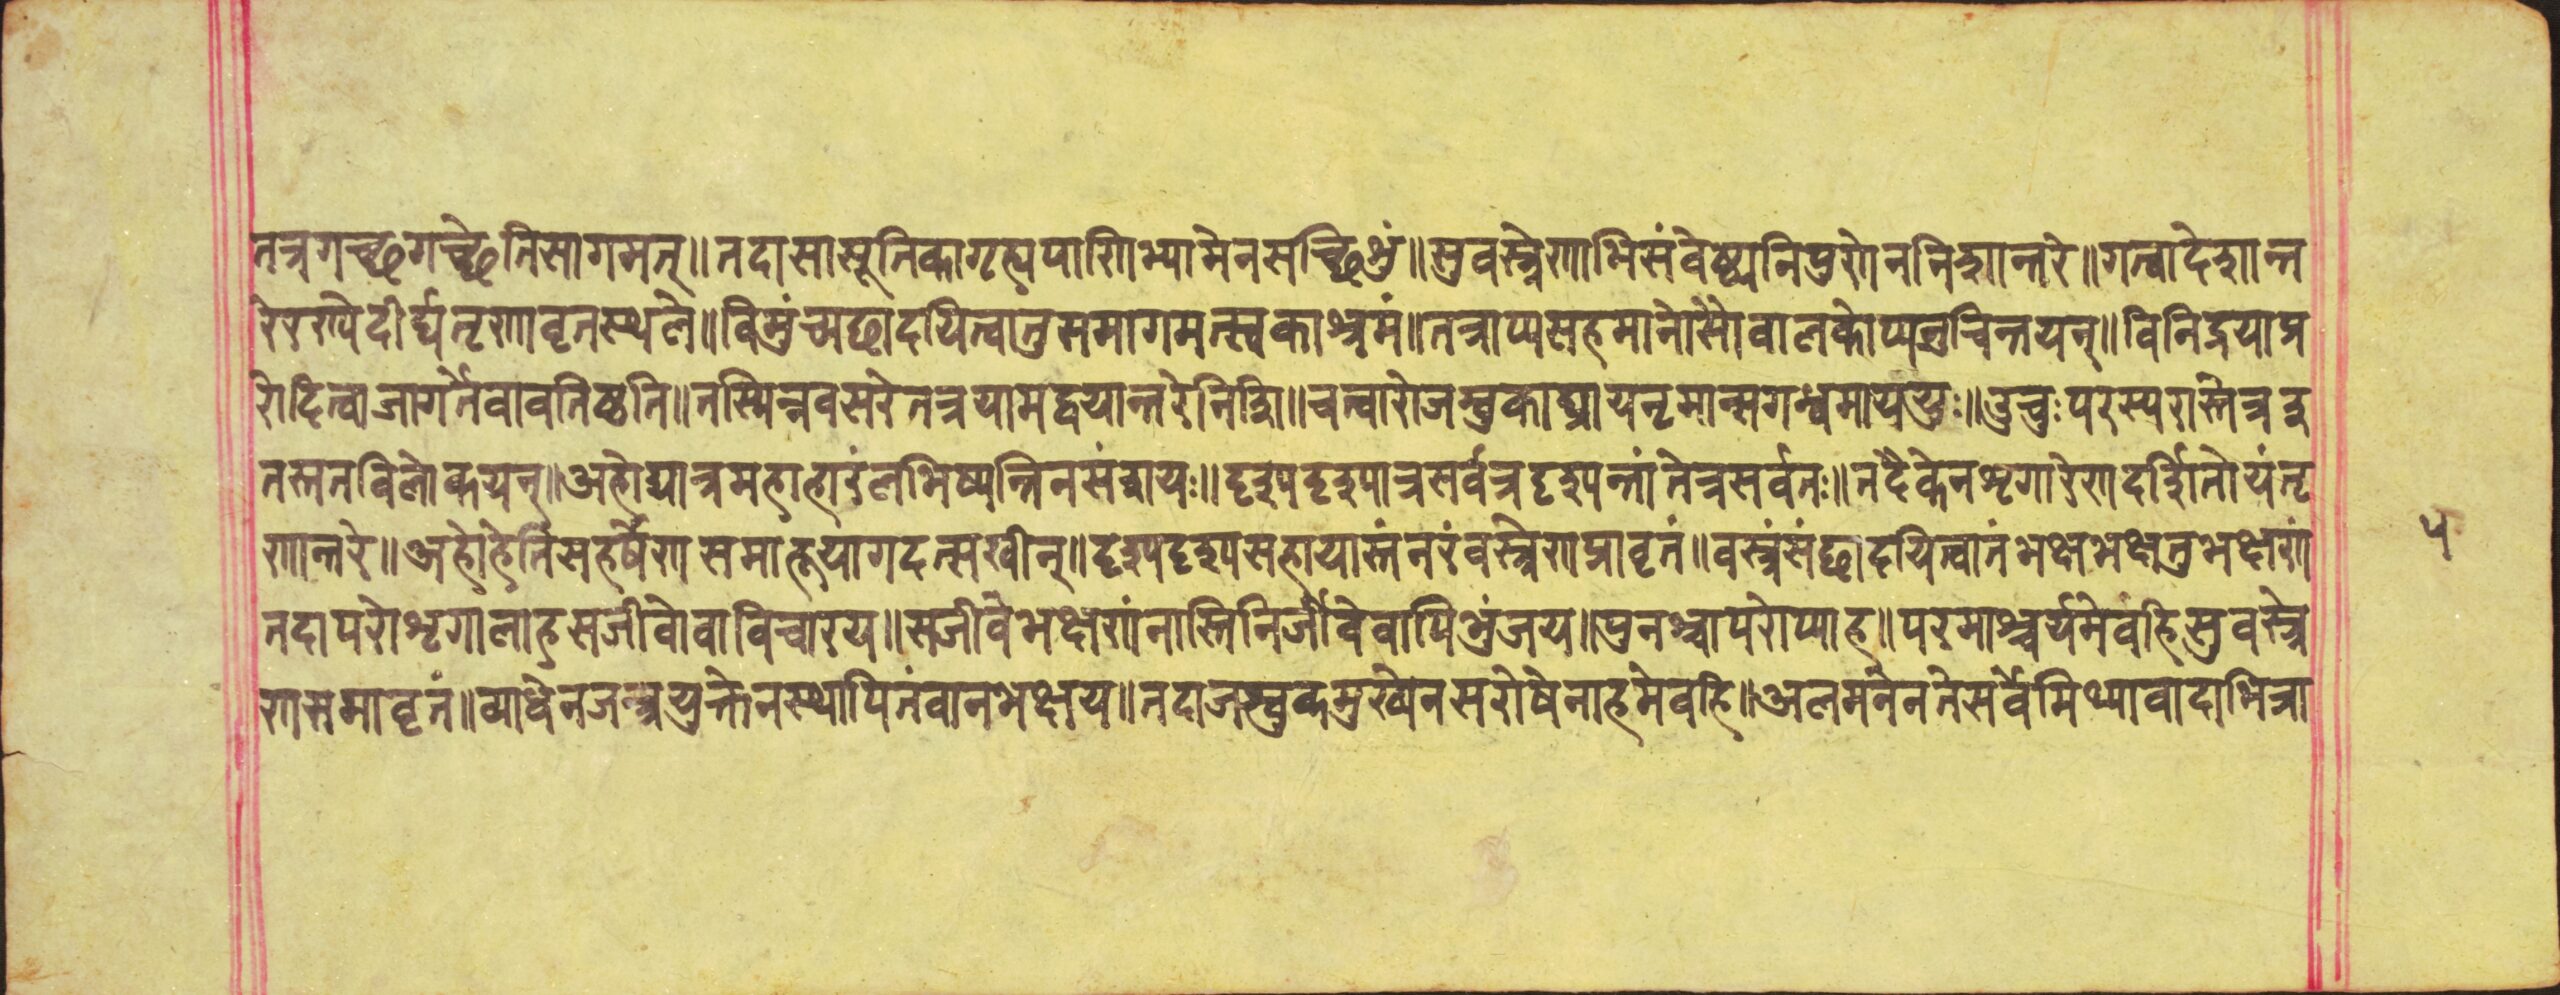 तत्रगच्छगच्छेतिसागमत्॥तदासासूतिकागृह्यपाणिभ्यामेनसच्छिशुं॥सुवस्त्रेणाभिसंवेष्ट्यनिपुणेननिशान्तरे॥गत्वादेशान्त
रेरण्येदीर्घतृणावृतस्थले॥विमुंच्यछादयित्वातुसमागमत्स्वकाश्रमं॥तत्राप्यसहमानोसौवालकोप्यनुचिन्तयन्॥विनिद्रयाप्र
रोदित्वाजागर्तैवावतिष्ठति॥तस्मिन्नवसरेतत्रयामद्वयान्तरेनिशि॥चत्वारोजम्बुकाघ्रायनृमान्सगन्धमाययुः॥उचुःपरस्परास्तत्रइ
तस्ततविलोकयन्॥अहोद्यात्रमहाहारंलभिष्यन्तिनसंशयः॥दृश्यदृश्यात्रसर्वत्रदृश्यन्तांतेत्रसर्वतः॥तदैकेनशृगारेणदर्शितोयंतृ
णान्तरे॥अहोहेतिसहर्षेणसमाहूयागदत्सखीन्॥दृश्यदृश्यसहायास्तंनरंवस्त्रेणप्रावृतं॥वस्त्रंसंछादयित्वानंभक्षभक्षतुभक्षणं
तदापरोशृगालाहसजीवोवाविचारय॥सजीवेभक्षणंनास्तिनिर्जीवेवापिभुंजय॥पुनश्चापरोप्याह॥परमाश्चर्यमेवंहिसुवस्त्रे
णसमावृतं॥व्याधेनजन्त्रयुक्तेनस्थापितंवानभक्षय॥तदाजम्बुकमुख्येनसरोषेनाहमेवहि॥अलमनेनतेसर्वेमिथ्यावादाभित्रा
५